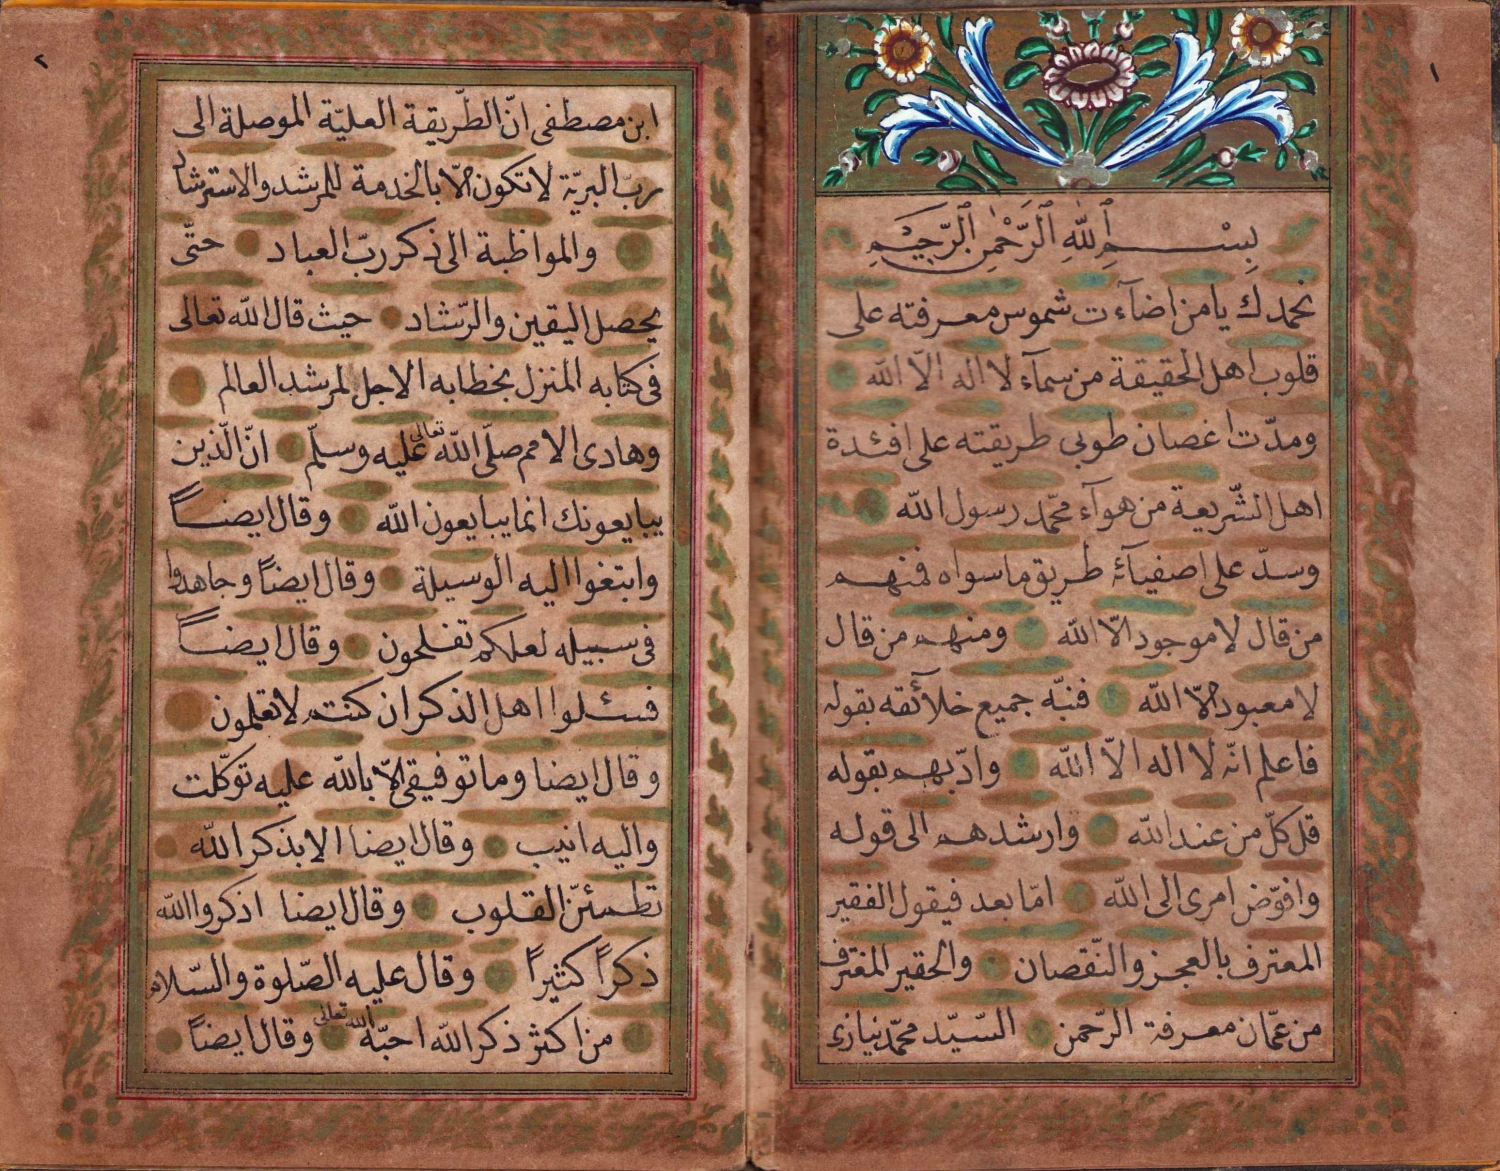 ١
بسم الله الرحمن الرحيم
نحمدك يا من اضآءت شموس معرفته على
قلوب اهل الحقيقة من سمآء لا اله الّا الله
ومدّت اغصان طوبى طريقته على افئدة
اهل الشّريعة من هوآء محمّد رسول الله
وسدّ على اصفيآئه طريق ما سواه فمنهم
من قال لا موجود الّا الله ومنهم من قال
لا معبود الّا الله فنبّه جميع خلآئقه بقوله
فاعلم انّه لا اله الّا الله وادّبهم بقوله
قل كلّ من عند الله وارشدهم الى قوله
وافوّض امرى الى الله امّا بعد فيقول الفقير
المعترف بالعجز والنّقصان والحقير المغترف
من عمّان معرفة الرّحمن السّيّد محمّد نيازى
٢
ابن مصطفى انّ الطّريقة العليّة الموصلة الى
ربّ البريّة لا تكون الّا بالخدمة للمرشد والاسترشاد
والمواظبة الى ذكر ربّ العباد حتّى
يحصل اليقين والرّشاد حيث قال الله تعالى
فى كتابه المنزل بخطابه الاجل لمرشد العالم
وهادى الامم صلّى الله تعالى عليه وسلّم انّ الّذين
يبايعونك انما يبايعون الله وقال ايضاً
وابتغوا اليه الوسيلة وقال ايضاً وجاهدوا
فى سبيله لعلكم تفلحون وقال ايضاً
فسئلوا اهل الذكر ان كنتم لا تعلمون
وقال ايضا وما توفيقى الّا بالله عليه توكّلت
واليه انيب وقال ايضا الا بذكر الله
تطمئنّ القلوب وقال ايضا اذكروا الله
ذكراً كثيراً وقال عليه الصّلوة والسّلام
من اكثر ذكر الله احبّه الله تعالى وقال ايضاً